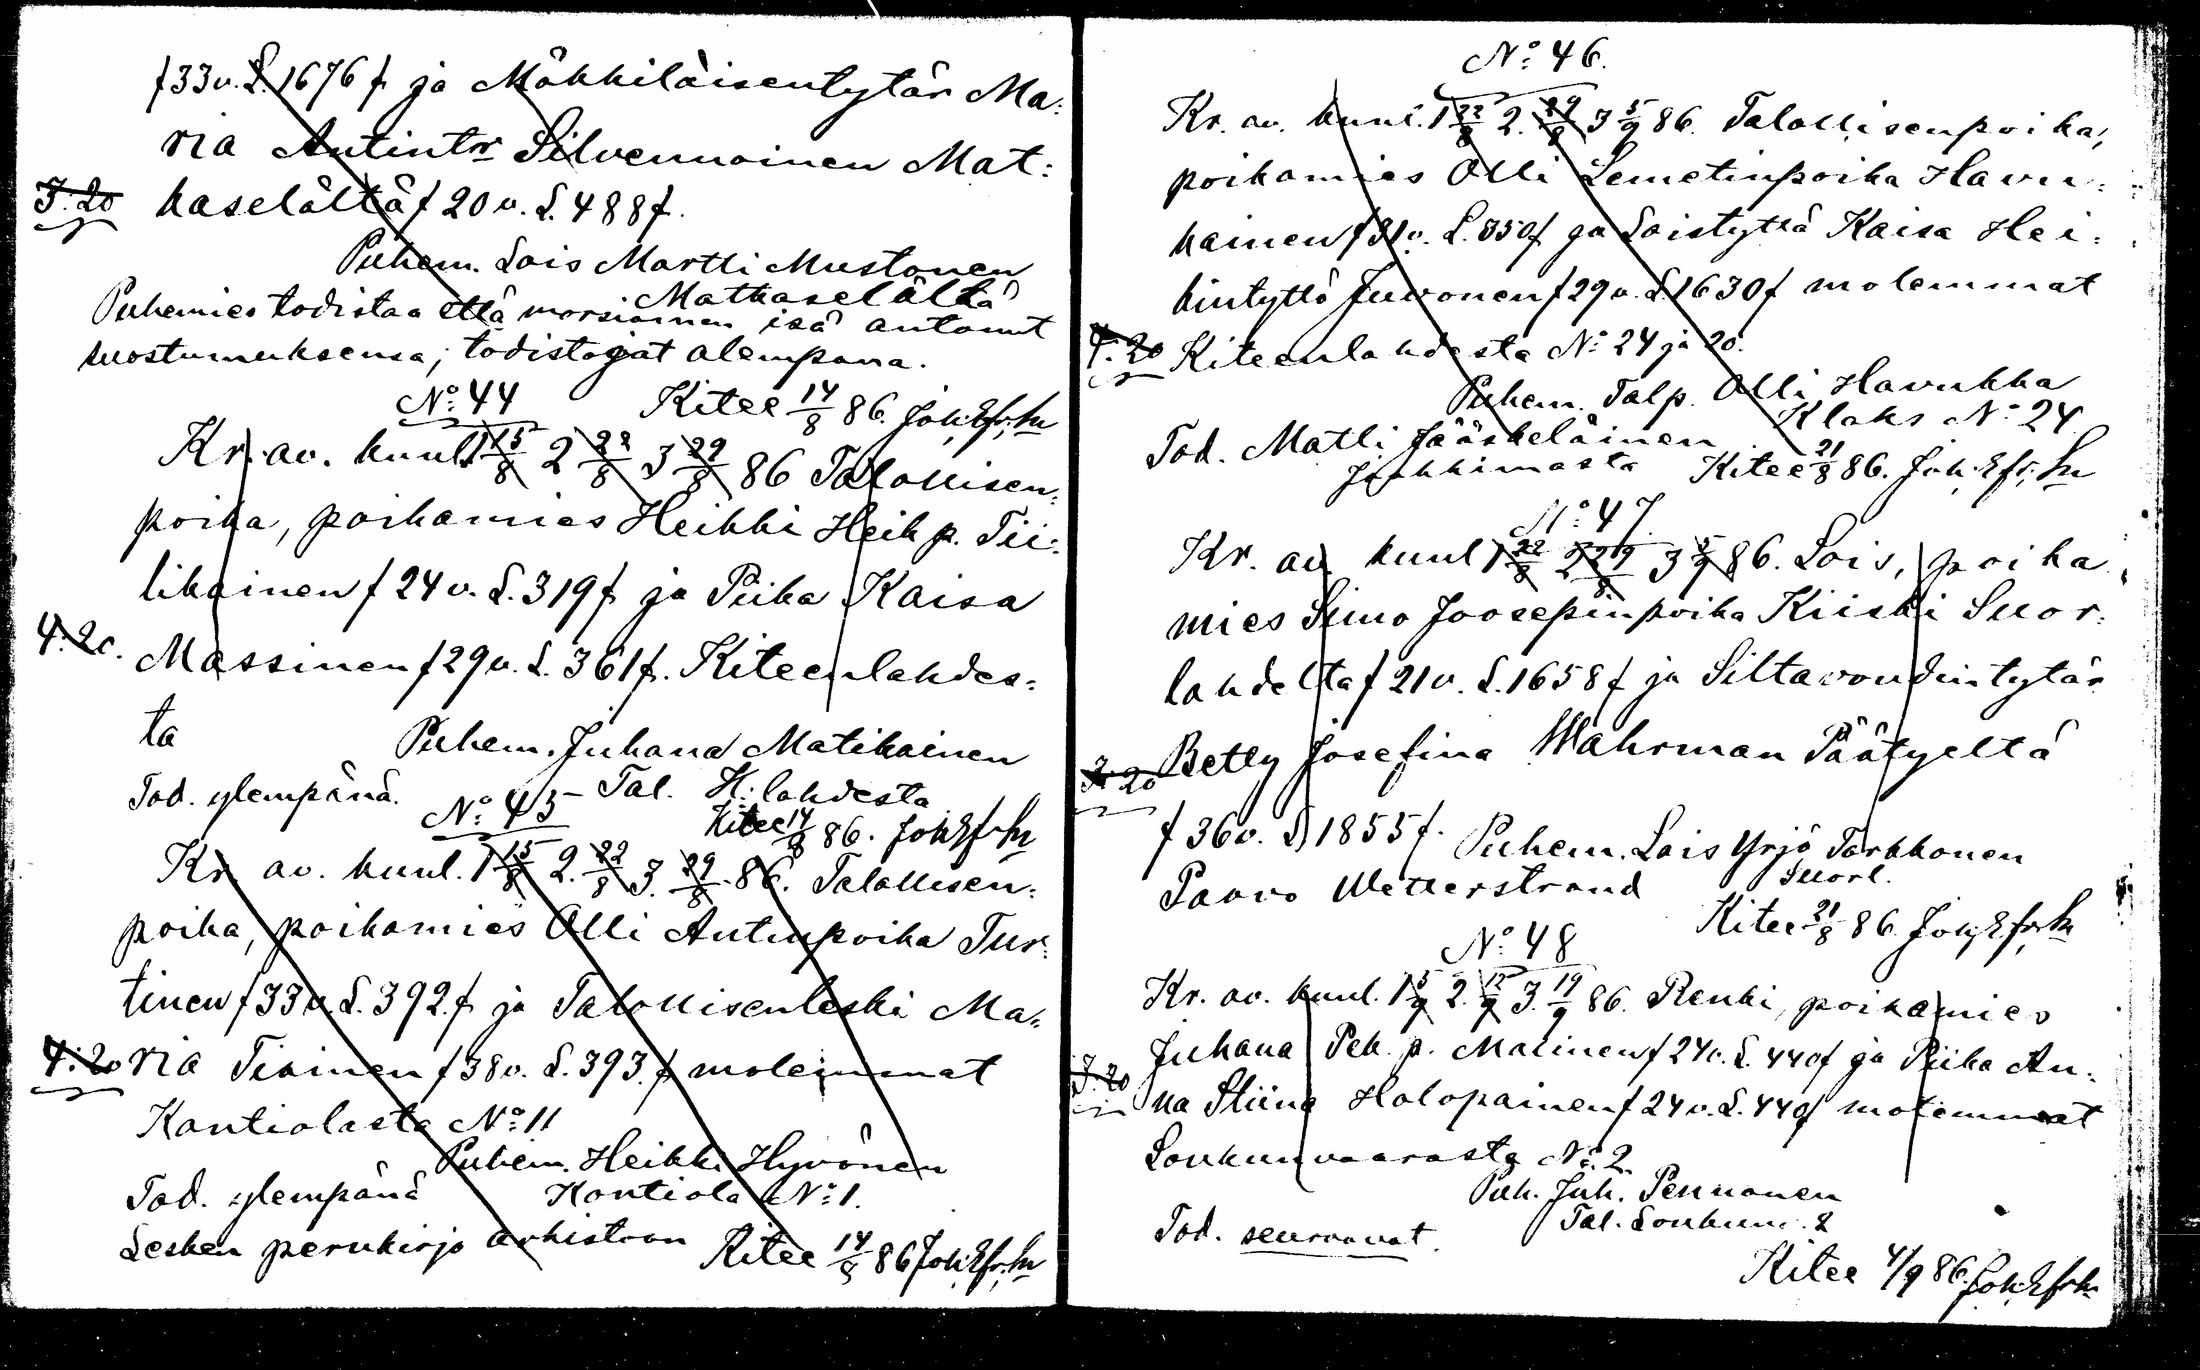 f 33 v. L. 1676 f ja Mökkiläisentytär Ma:
ria Antintr Silvennoinen Mat:
3:20 kaselältä f 20 v. L. 488 f.
Puhem. Lois Martti Mustonen
Matkaselältä
Puhemies todistaa että morsiamen isä antanut
suostumuksensa; todistajat alempana.
No: 44 Kitee 14/8 86.
Kr. av. kuul. 1 15/8 2 22/8 3 29/8 86 Talollisen:
poika, poikamies Heikki Heik p. Tii:
likainen f 24 v. L. 319 f ja Piika Kaisa
4:20. Massinen f 29 v. L. 361 f. Kiteenlahdes:
ta Puhem. Juhana Matikainen
Tod. ylempänä. Tal. K:lahdesta
No: 45 Kitee 14/8 86.
Kr. av. kuul. 1 15/8 2. 22/8 3. 29/8 86. Talollisen:
poika, poikamies Olli Antinpoika Tur:
tinen f 33 v. L. 392 f ja Talollisenleski Ma:
4:20 ria Tiainen f 38 v. L. 393 f molemmat
Kontiolasta No: 11
Puhem. Heikki Hyvönen
Tod. ylempänä Kontiola No: 1.
Lesken perukirja arkistoon Kitee 14/8 86
No: 46.
Kr. av. kuul. 1 22/8 2. 29/8 3 5/9 86. Talollisenpoika,
poikamies Olli Lemetinpoika Havu:
kainen f 31 v. L. 350 f ja Loistyttö Kaisa Hei:
kintyttö Juvonen f 29 v. L. 1630 f molemmat
4:20 Kiteenlahdesta No: 24 ja 20.
Puhem. Talp. Olli Havukka
Klaks No: 24
Tod. Matti Jääskeläinen
Juhkimasta Kitee 21/8 86.
No: 47.
Kr. av. kuul 1 22/8 2 29/8 3 5/9 86. Lois, poika
mies Simo Joosepinpoika Kiiski Suor:
lahdelta f 21 v. L. 1658 f ja Siltavoudintytär
3:20 Betty Josefina Wahrman Päätyeltä
f 36 v. L 1855 f. Puhem. Lois Yrjö Tarkkonen
Suorl.
Paavo Wetterstrand Kitee 21/8 86
No: 48
Kr. av. kuul. 1 5/9 2. 12/9 3. 19/9 86. Renki, poikamies
Juhana Pek. p. Malinen f 24 v. L. 440 f ja Piika An:
3:20 na Stiina Holopainen f 24 v. L. 440 f molemmat
Loukunvaarasta No: 2.
Puh. Juh. Pennanen
Tal. Loukunv. 2
Tod. seuraavat.
Kitee 4/9 86.